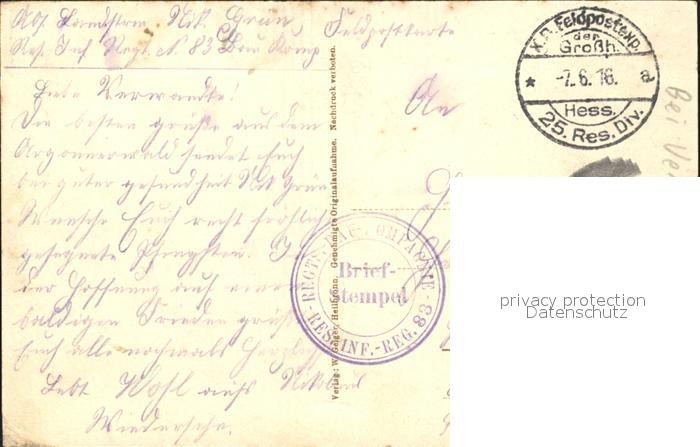 Abs. Landstrm. Nik. Grün
Res. Inf. Regt. No 83 Bau Komp
Feldpostkarte
Liebe Verwandte!
Die besten Grüße aus dem
Argonnerwald sendet Euch
bei guter Gesundheit Nik Grün
Wünsche Euch recht fröhlich
gesegnete Pfingsten. In
der Hoffnung auf einen
baldigen Frieden grüßt
Euch alle nochmals herzlich
Lebt Wohl aufs Nikolaus
Wiedersehn.
An
K.D. Feldpostexp.
der
Großh.
* -7.6.16. a
Hess.
25. Res. Div.
REGTS. BAUKOMPAGNIE
Brief-
stempel
RES. INF.-REG. 83
Verlag: W. Geiger, Heilbronn. Genehmigte Originalaufnahme. Nachdruck verboten.
Bei
privacy protection
Datenschutz